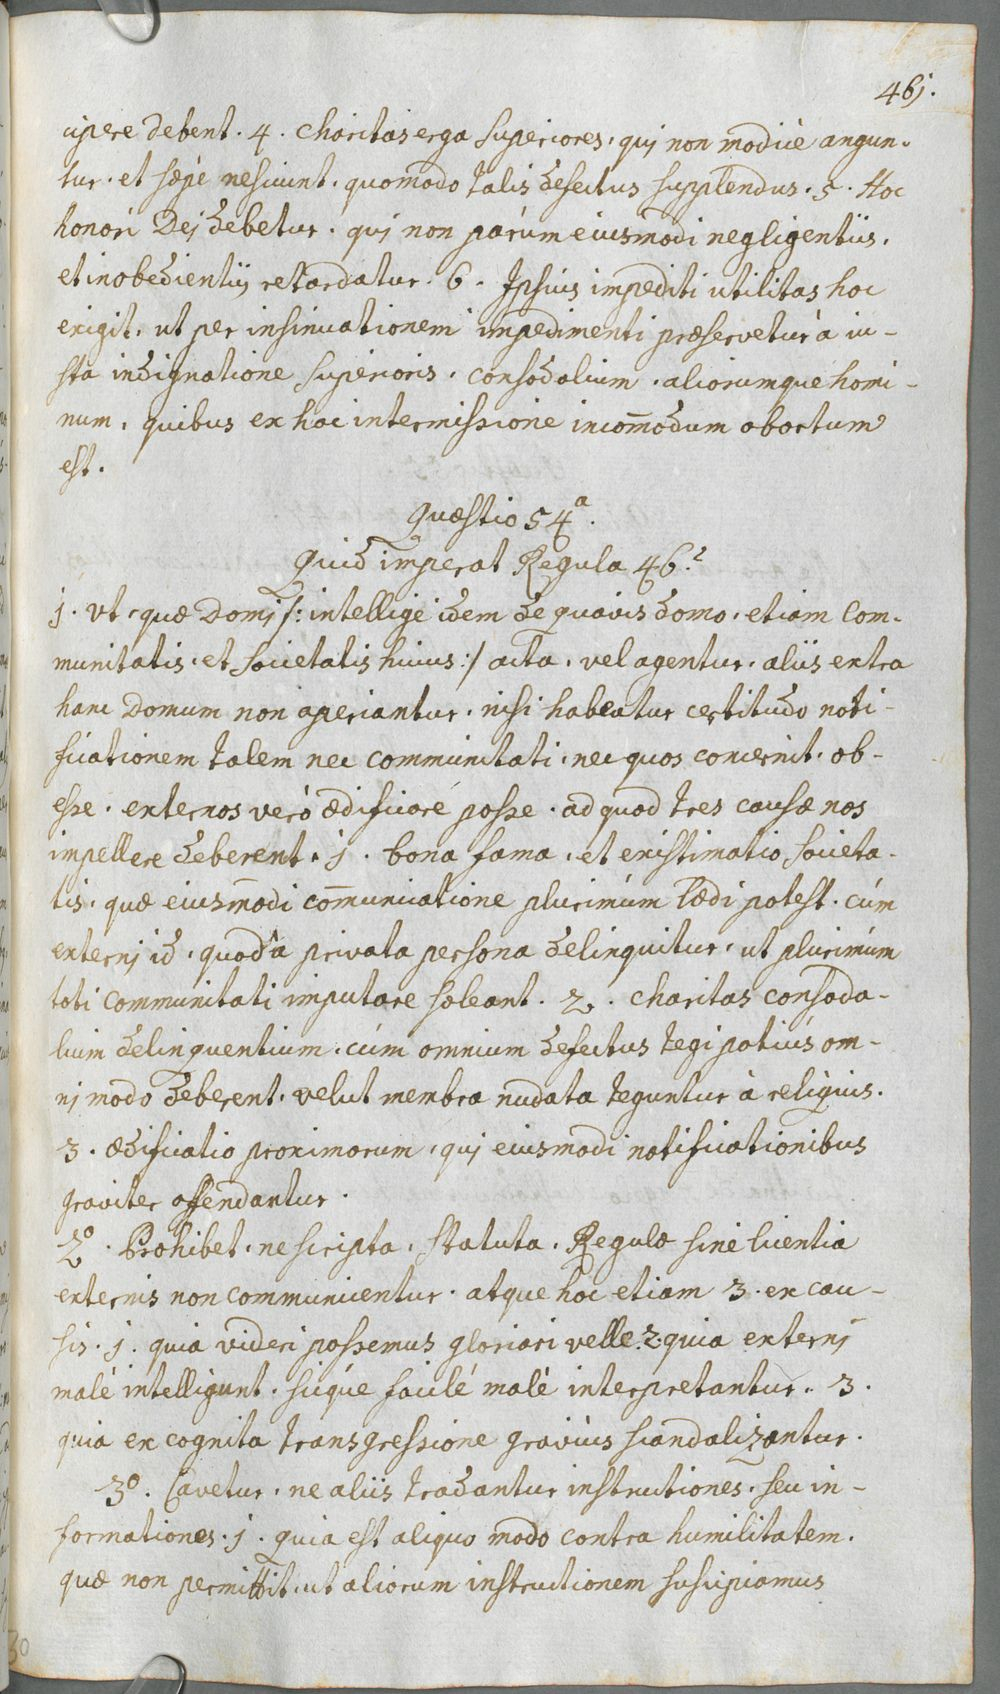 461.
cipere debent. 4. Charitas erga Superiores, quj non modicè angun-
tur, et sæpè nesciunt, quomodo talis defectus supplendus. 5. Hoc
honori Dej debetur, quj non parùm eiusmodi negligentiis,
et inobedientiis retardatur. 6. Ipsius impediti utilitas hoc
exigit, ut per insinuationem impedimenti præservetur à iu-
sta indignatione Superioris, consodalium, aliorumque homi-
num, quibus ex hoc intermissione incom̄odum obortum
est.
Quæstio 54ª.
Quid imperat Regula 46.ᵃ
j. Vt, quæ Domj /: intellige idem de quavis domo, etiam Com-
munitatis, et Societatis huius :/ acta, vel agentur, aliis extra
hanc Domum non aperiantur, nisi habeatur certitudo noti-
ficationem talem nec communitati, nec quos concernit, ob-
esse, externos verò ædificare posse, ad quod tres causæ nos
impellere deberent. j. bona fama, et existimatio Societa-
tis, quæ eiusmodi com̄unicatione plurimùm lædi potest, cùm
externj id, quod à privata persona delinquitur, ut plurimùm
toti Communitati imputare soleant. 2. Charitas consoda-
lium delinquentium, cùm omnium defectus tegi potiùs om-
nj modo deberent, velut membra nudata teguntur à reliquis.
3. ædificatio proximorum, quj eiusmodi notificationibus
graviter offendantur.
2º. Prohibet, ne scripta, Statuta, Regulæ sine licentia
externis non communicentur, atque hoc etiam 3. ex cau-
sis. j. quia videri possemus gloriari velle. 2. quia externj
malè intelligunt, sicque facilè malè interpretantur. 3.
quia ex cognita transgressione graviùs scandalizantur.
3º. Cavetur, ne aliis tradantur instructiones, seu in-
formationes. j. quia est aliquo modo contra humilitatem,
quæ non permittit, ut aliorum instructionem suscipiamus